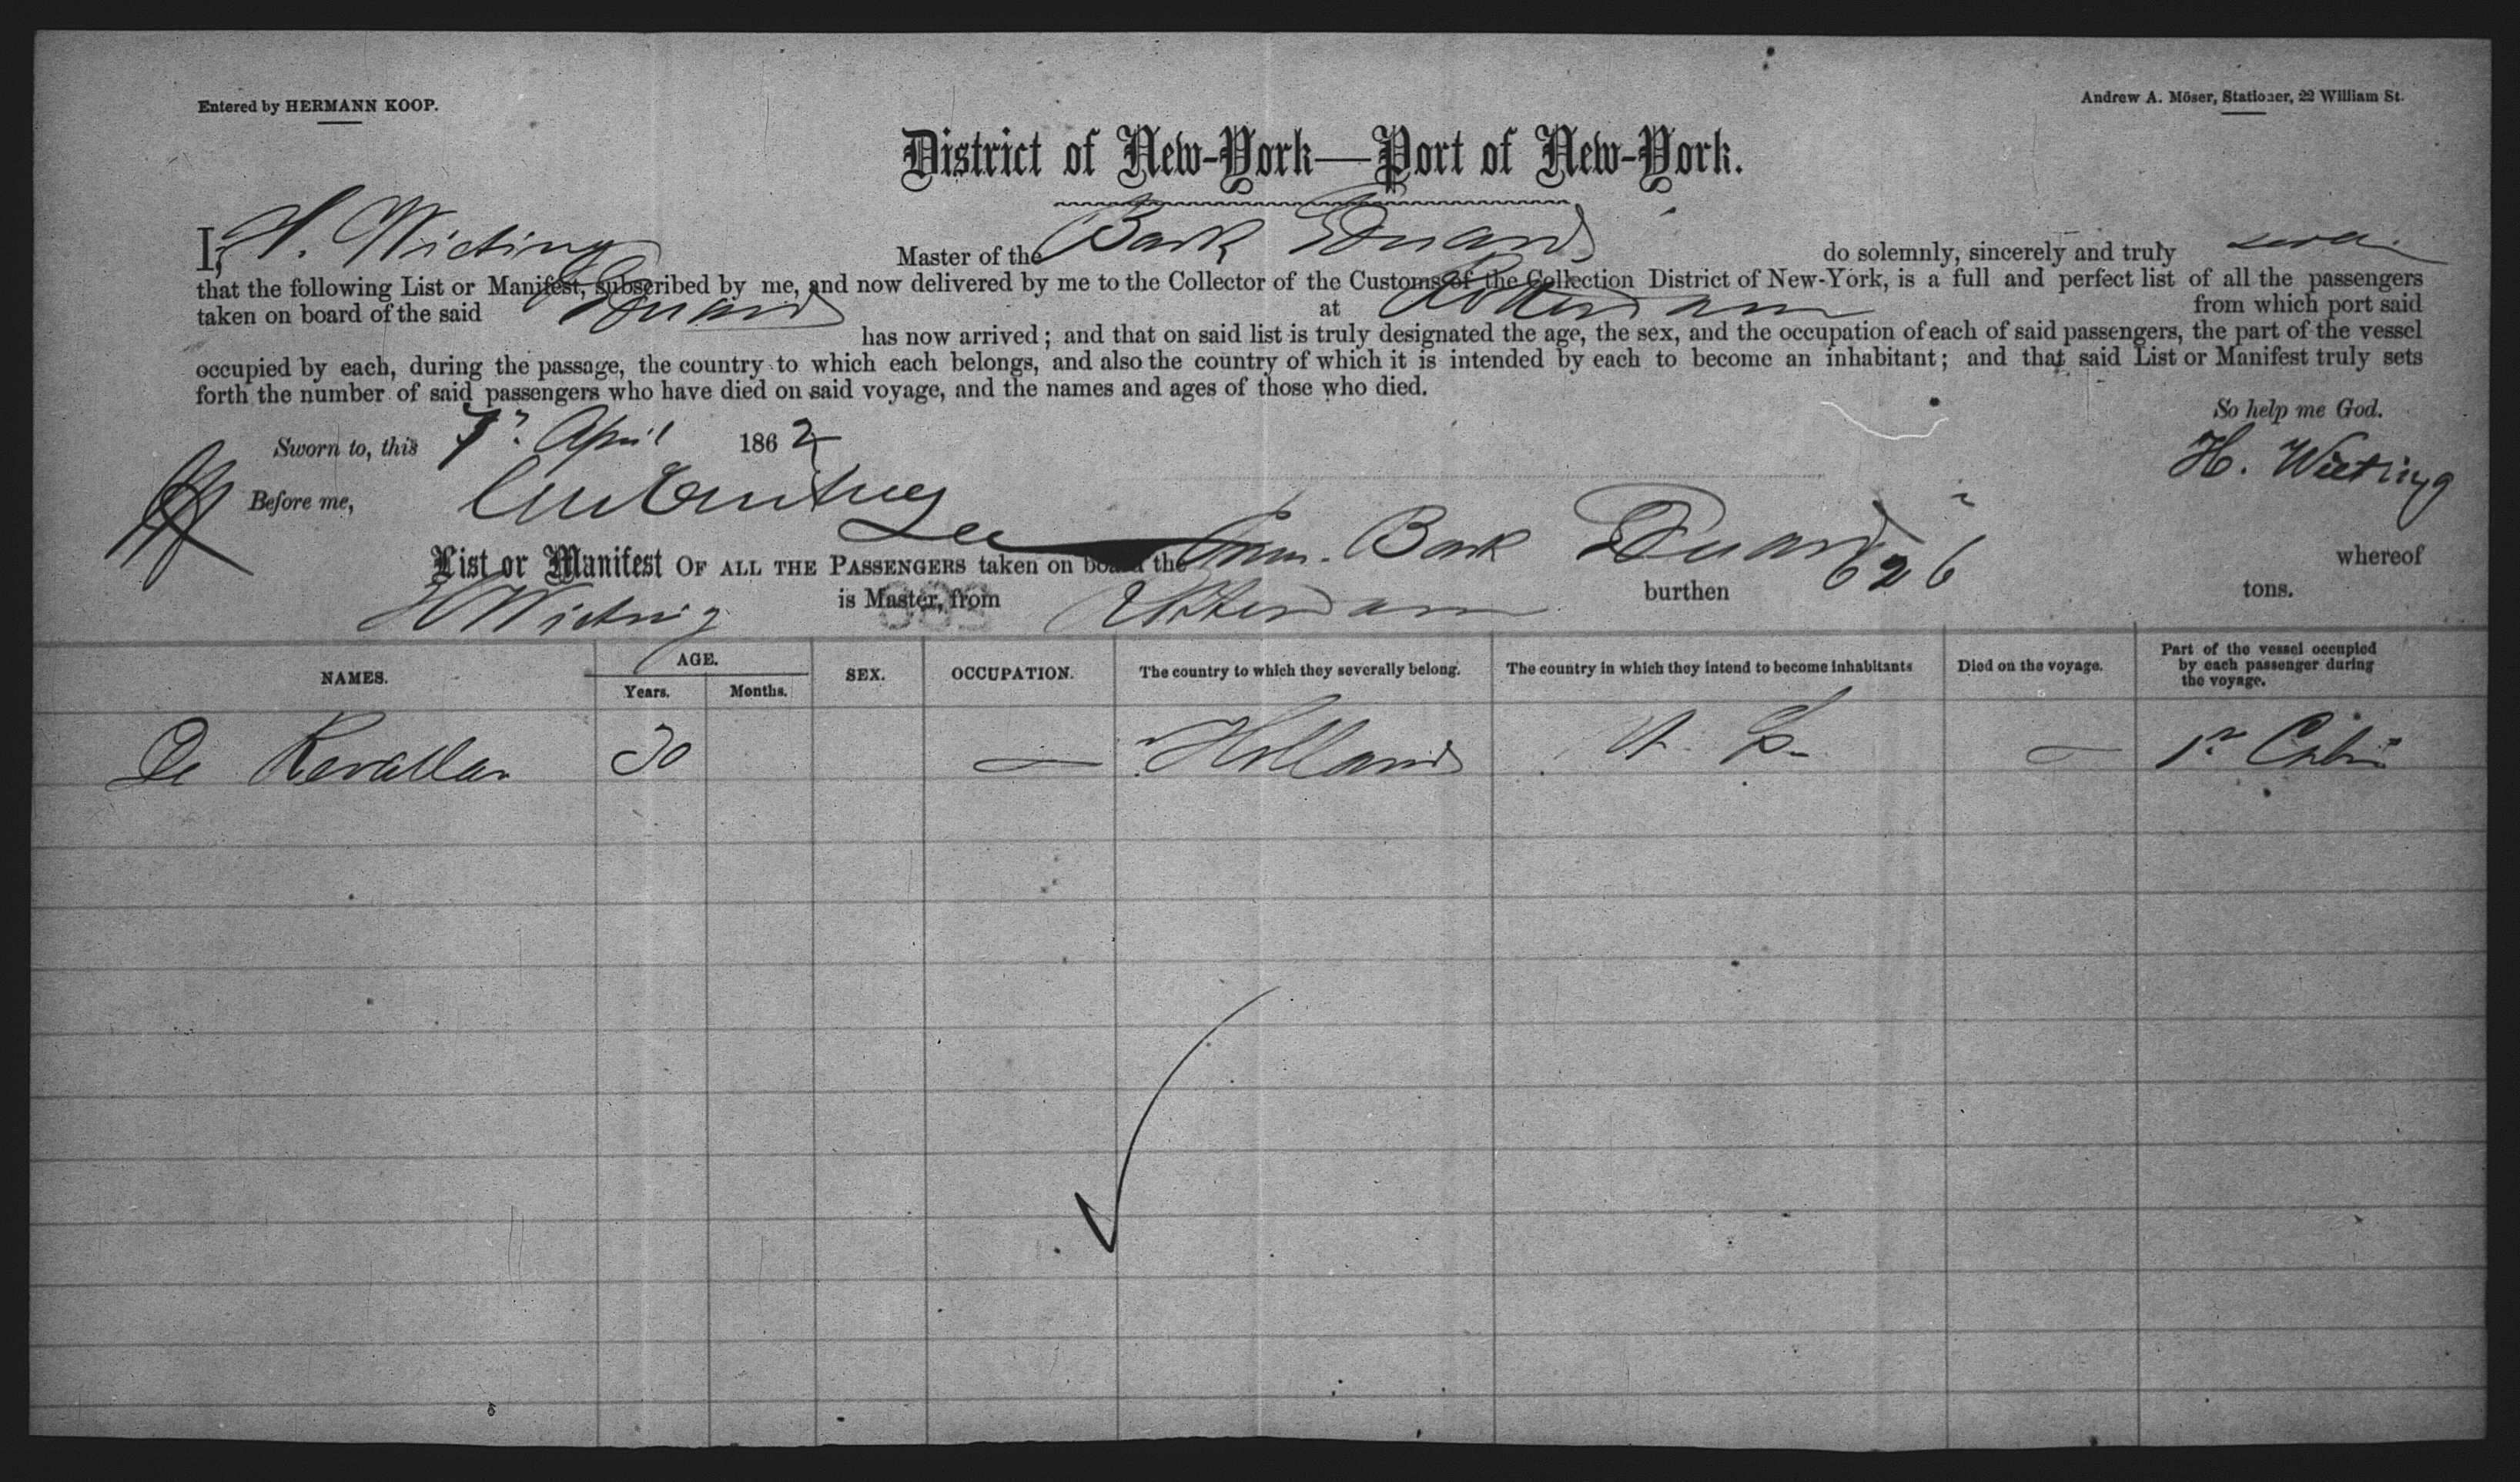 Entered by HERMANN KOOP.
Andrew A. Möser, Stationer, 22 William St.
District of New-York—Port of New-York.
I, H. Wieting Master of the Bark Eduard do solemnly, sincerely and truly swear
that the following List or Manifest, subscribed by me, and now delivered by me to the Collector of the Customs of the Collection District of New-York, is a full and perfect list of all the passengers
taken on board of the said Eduard at Rotterdam from which port said
has now arrived; and that on said list is truly designated the age, the sex, and the occupation of each of said passengers, the part of the vessel
occupied by each, during the passage, the country to which each belongs, and also the country of which it is intended by each to become an inhabitant; and that said List or Manifest truly sets
forth the number of said passengers who have died on said voyage, and the names and ages of those who died.
So help me God.
Sworn to, this 7 April 1862
H. Wieting
Before me,
List or Manifest OF ALL THE PASSENGERS taken on board the Brem. Bark Eduard whereof
H Wieting is Master, from Rotterdam burthen 626 tons.
NAMES. AGE. Years. Months. SEX. OCCUPATION. The country to which they severally belong. The country in which they intend to become inhabitants Died on the voyage. Part of the vessel occupied by each passenger during the voyage.
De 30 — Holland U. S. — 1r Cabin